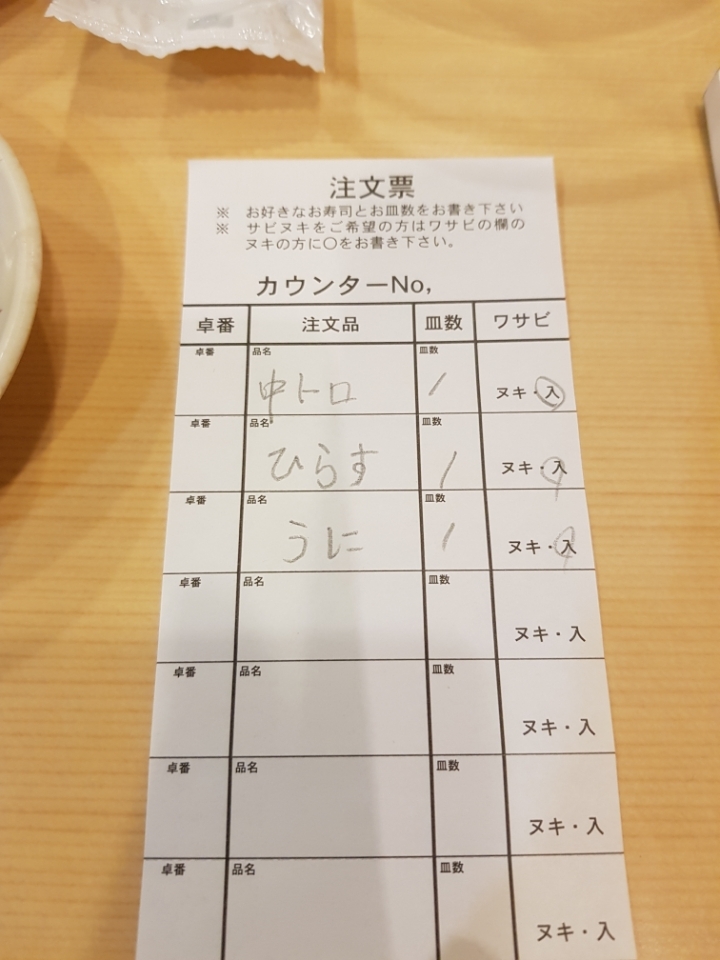 注文票
※ お好きなお寿司とお皿数をお書き下さい
※ サビヌキをご希望の方はワサビの欄の
ヌキの方に〇をお書き下さい。
カウンターNo,
卓番 注文品 皿数 ワサビ
卓番 品名 皿数
中トロ / ヌキ・入
卓番 品名 皿数
ひらす / ヌキ・入
卓番 品名 皿数
うに / ヌキ・入
卓番 品名 皿数
ヌキ・入
卓番 品名 皿数
ヌキ・入
卓番 品名 皿数
ヌキ・入
卓番 品名 皿数
ヌキ・入